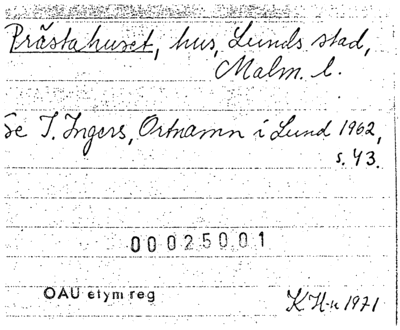 Prästahuset, hus, Lunds stad,
Malm. l.
Se I. Ingers, Ortnamn i Lund 1962,
s. 43.
00025001
OAU etym reg
KH-n 1971